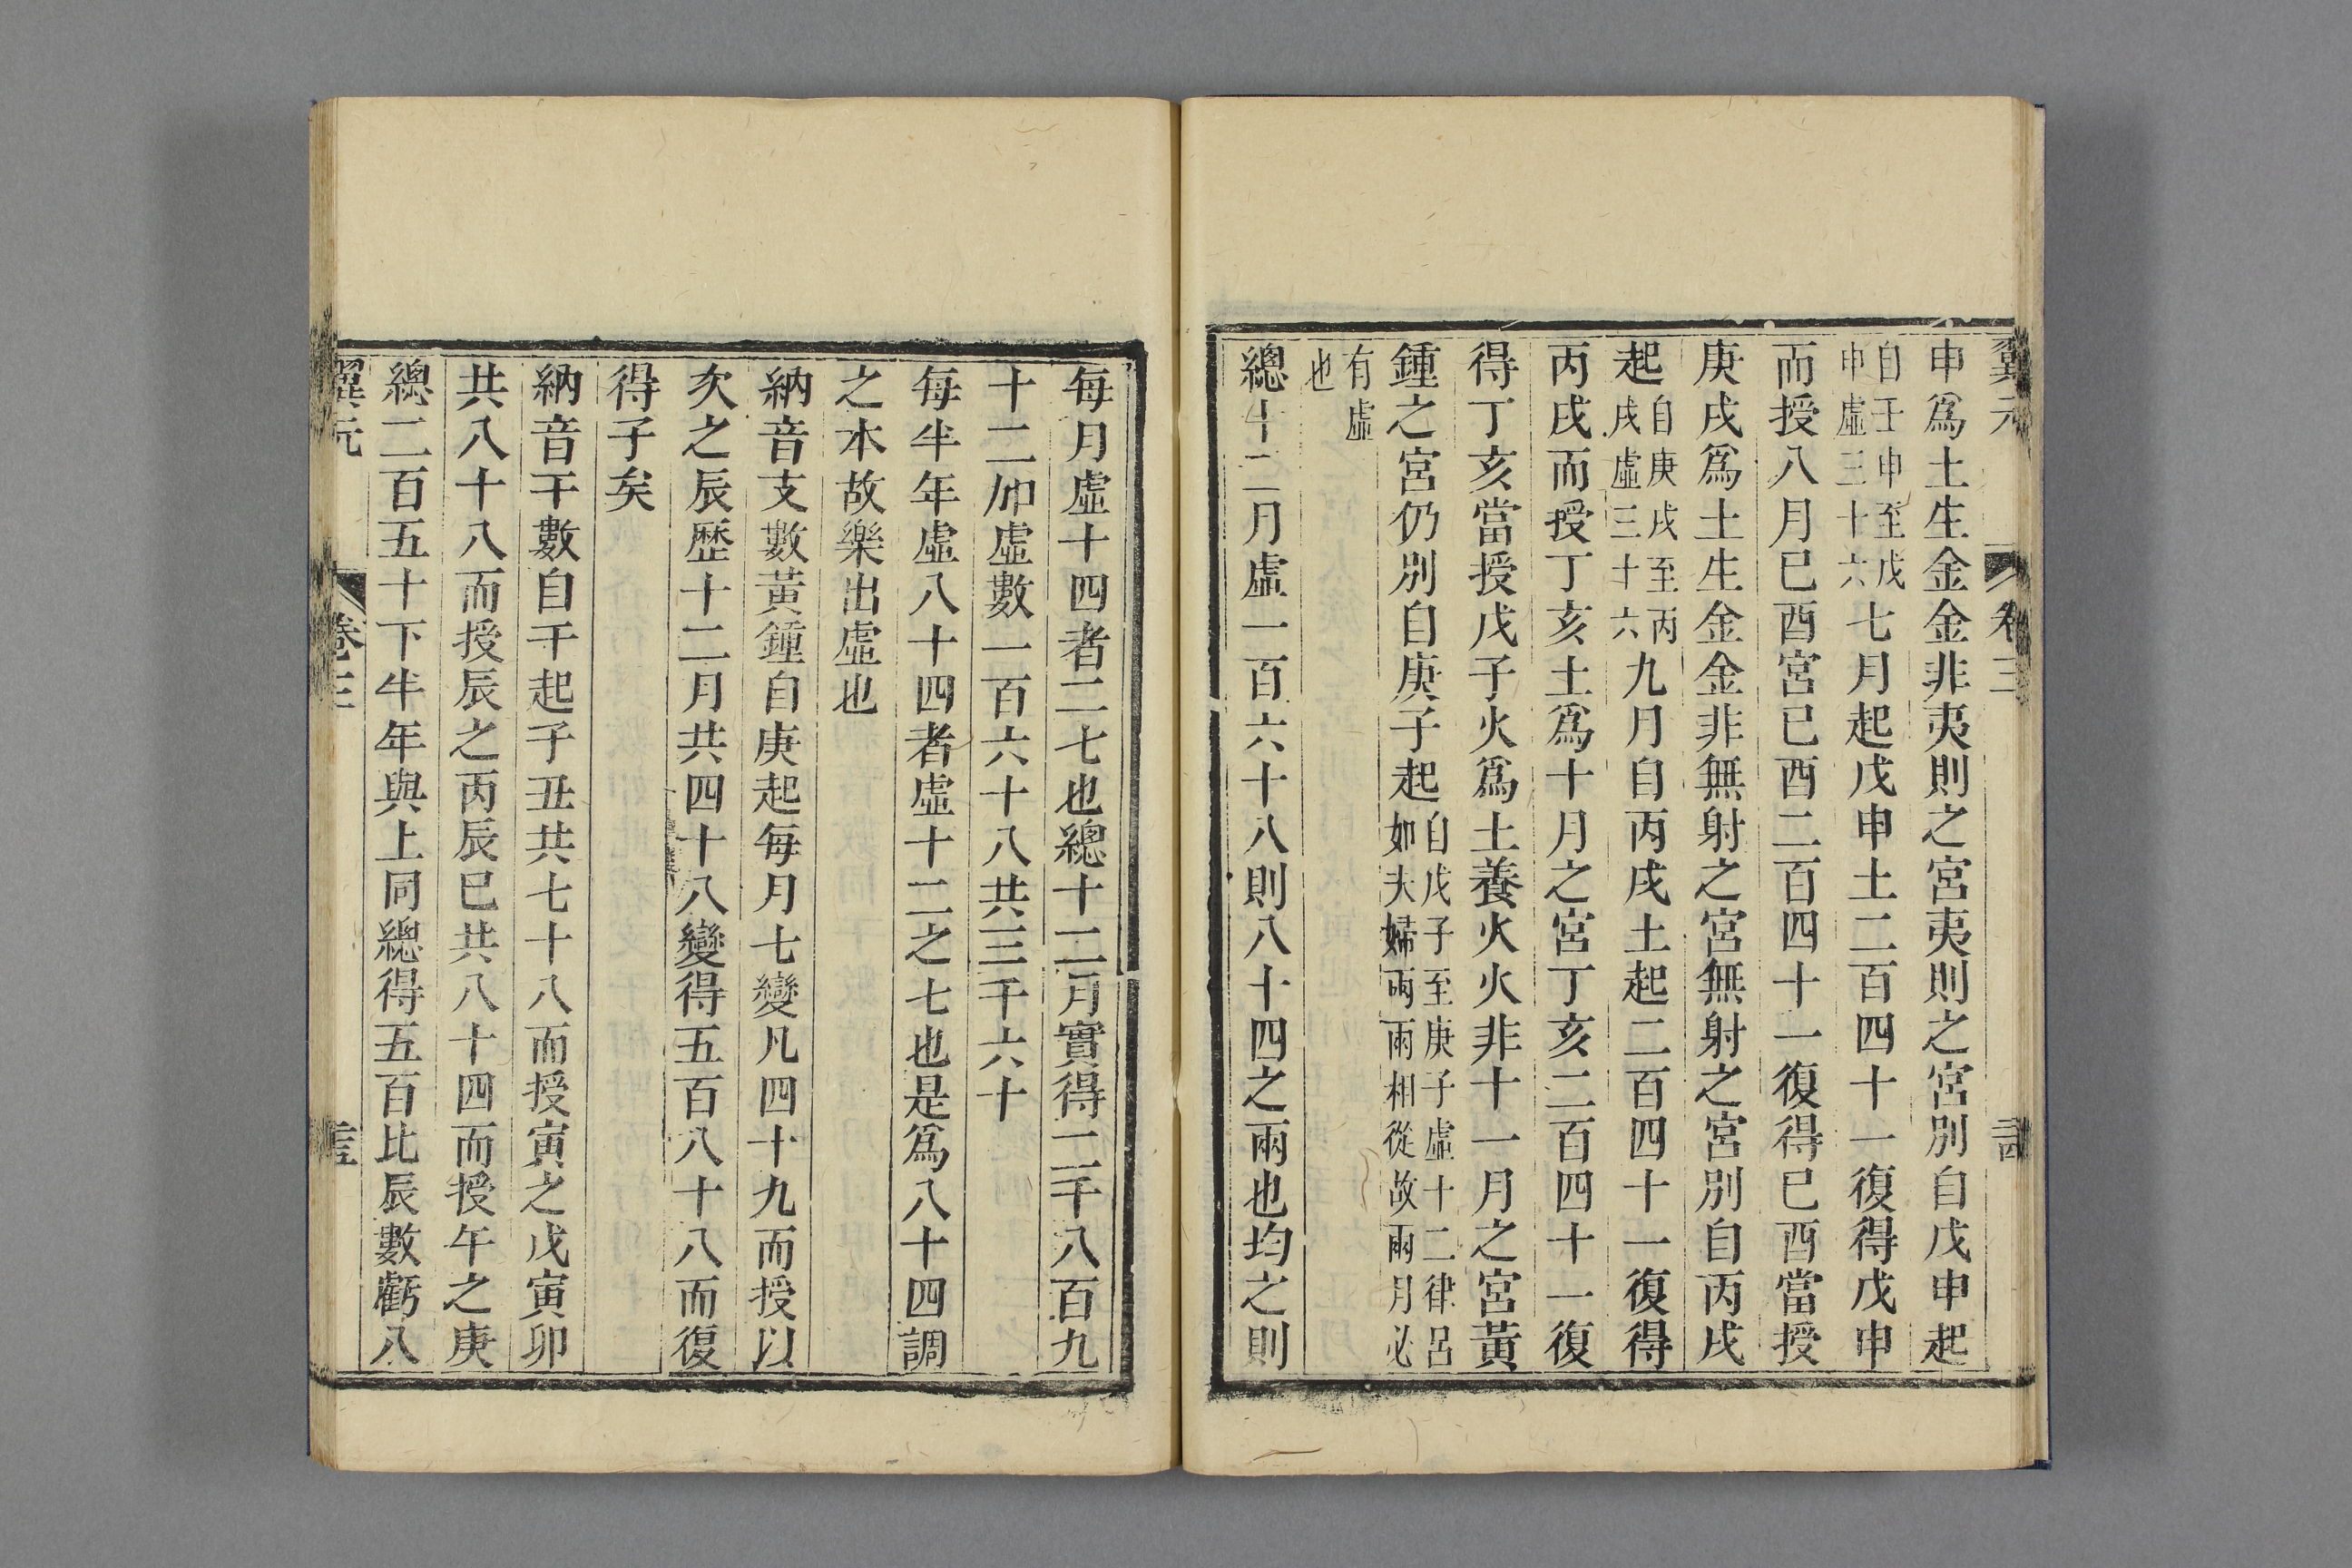 翼元 卷三
申爲土生金金非夷則之宮夷則之宮別自戊申起
自壬申至戊申虛三十六七月起戊申土二百四十一復得戊申
而授八月巳酉宮巳酉二百四十一復得巳酉當授
庚戌爲土生金金非無射之宮無射之宮別自丙戌
起自庚戌至丙戌虛三十六九月自丙戌土起二百四十一復得
丙戌而授丁亥土爲十月之宮丁亥二百四十一復
得丁亥當授戊子火爲土養火火非十一月之宮黃
鍾之宮仍別自庚子起自戊子至庚子虛十二律呂如夫婦兩兩相從故兩月必
有虛也
總十二月虛一百六十八則八十四之兩也均之則
每月虛十四者二七也總十二月實得二千八百九
十二加虛數一百六十八共三千六十
每半年虛八十四者虛十二之七也是爲八十四調
之本故樂出虛也
納音支數黃鍾自庚起每月七變凡四十九而授以
次之辰歷十二月共四十八變得五百八十八而復
得子矣
納音干數自干起子丑共七十八而授寅之戊寅卯
共八十八而授辰之丙辰巳共八十四而授午之庚
總二百五十下半年與上同總得五百比辰數虧八
翼元 卷三